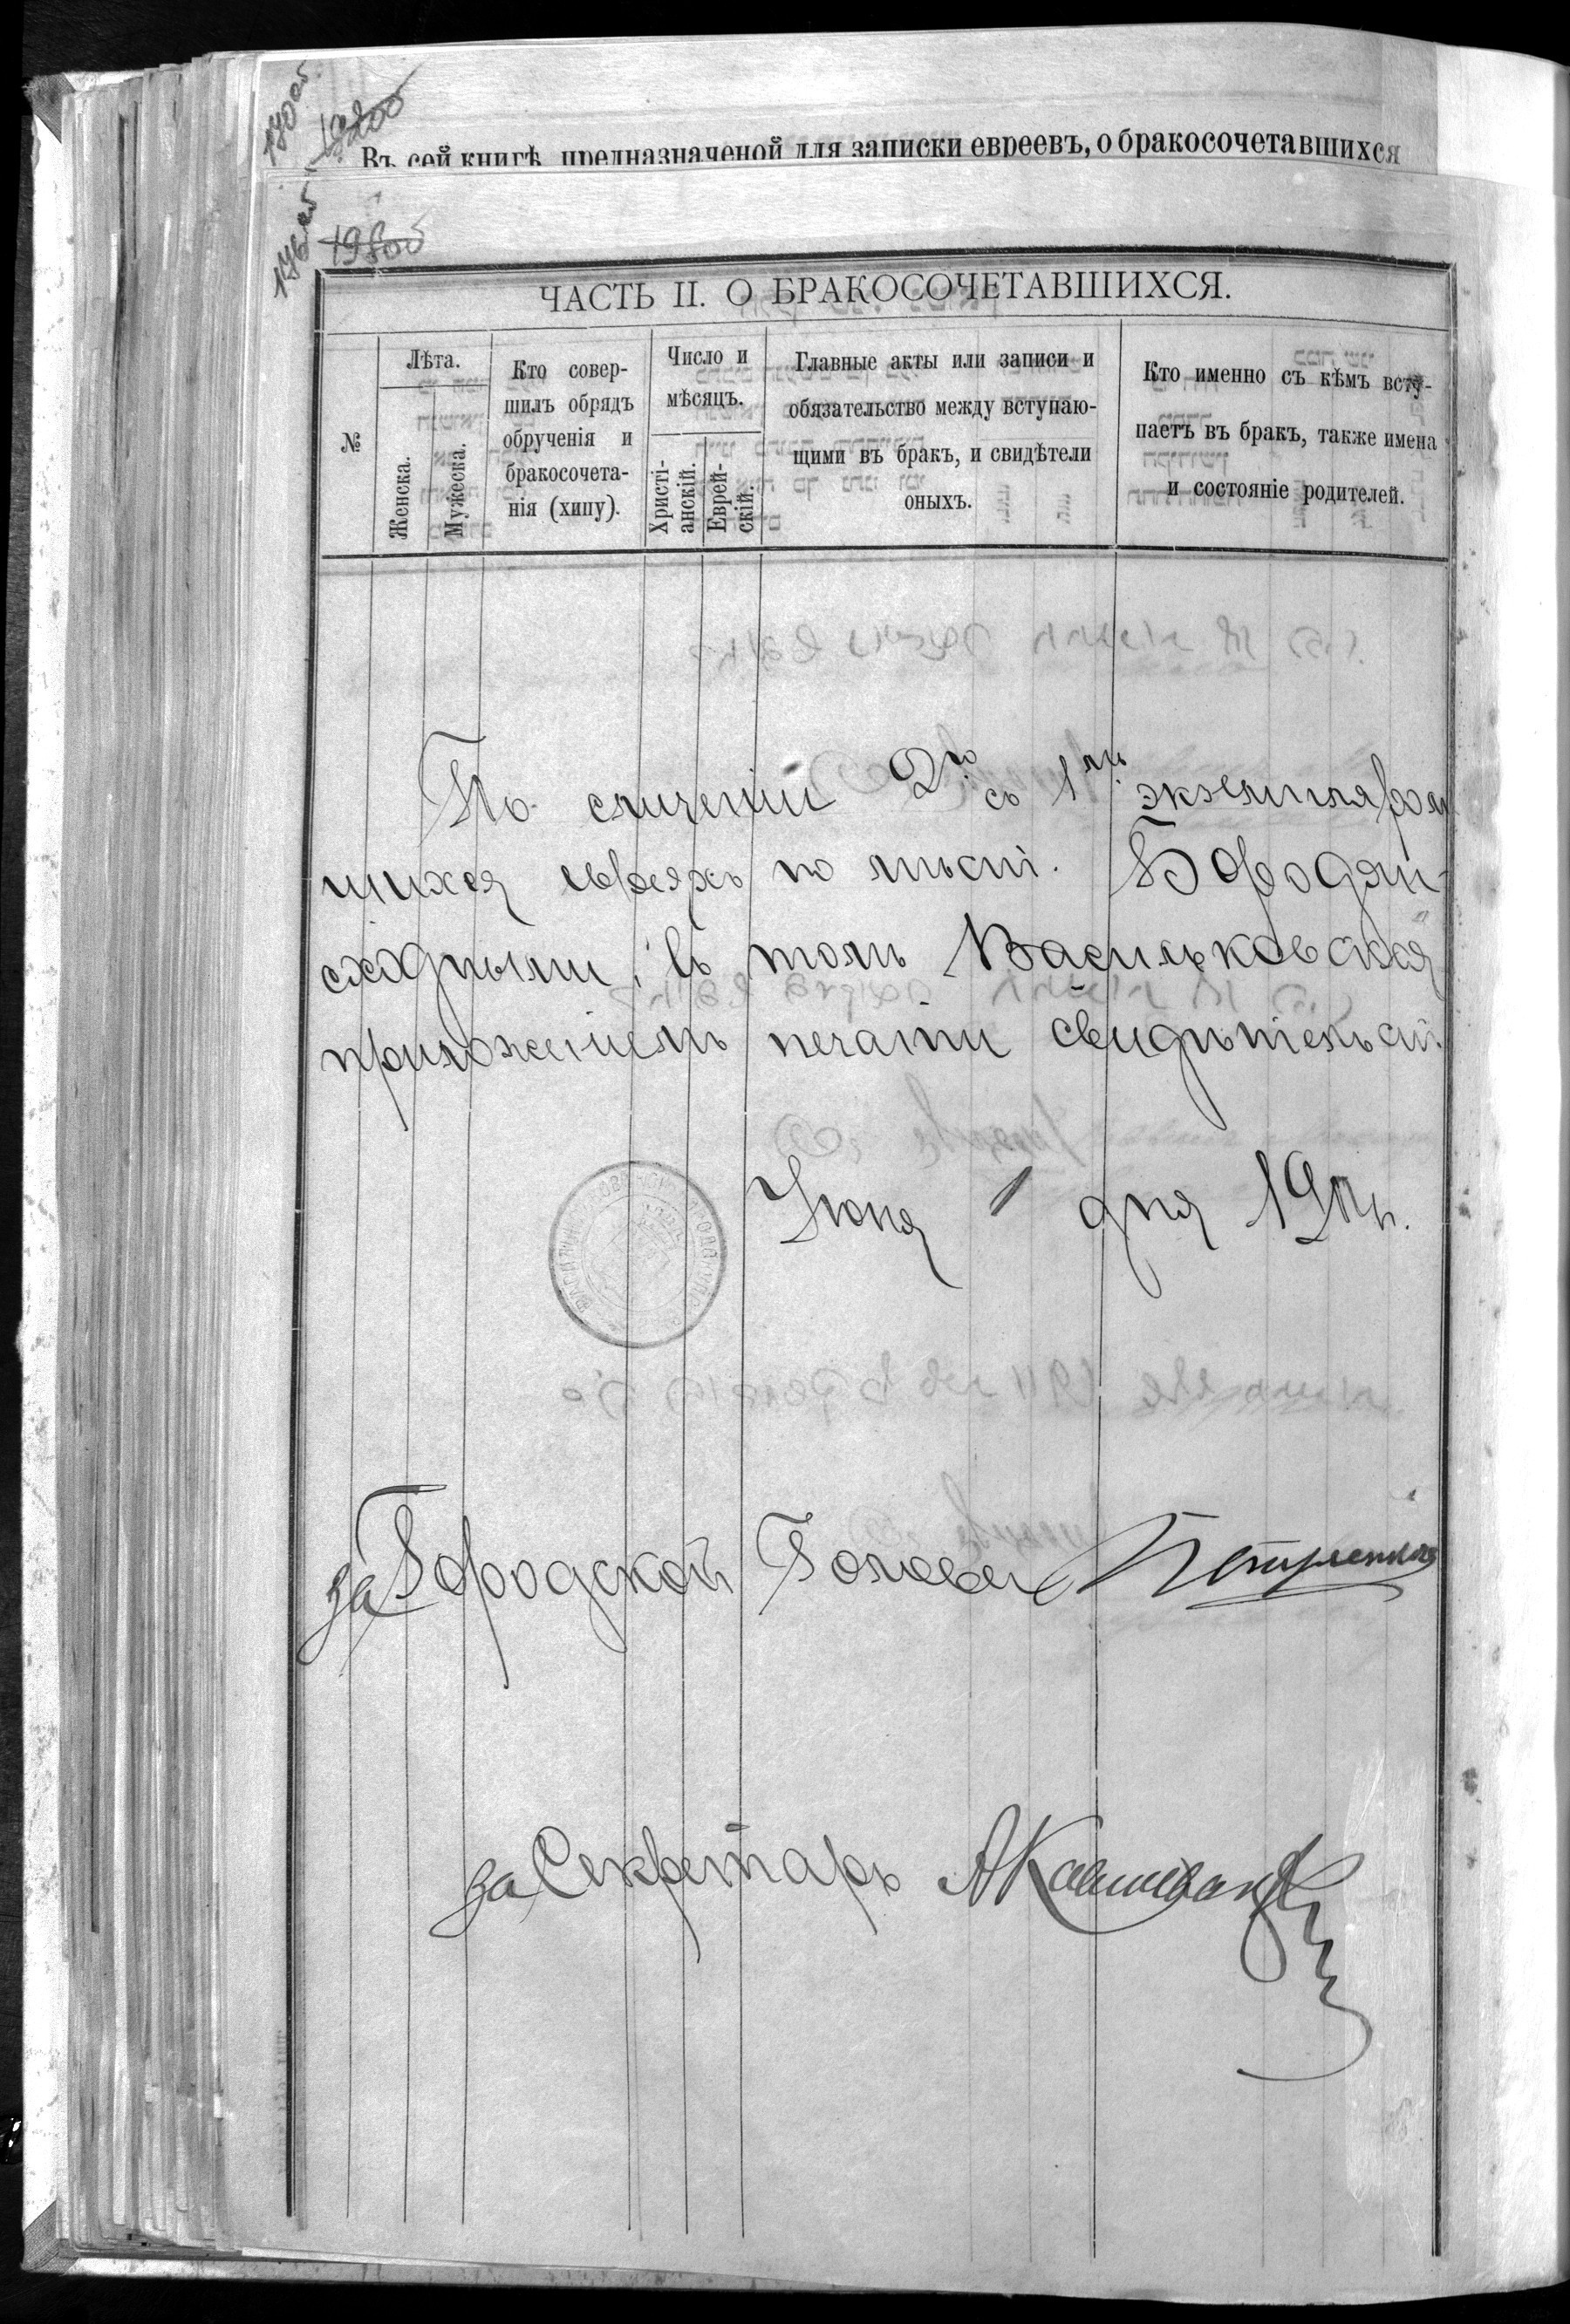 170 об
Въ сей книгѣ, предназначеной для записки евреевъ, о бракосочетавшихся
176 об
198 об
ЧАСТЬ II. О БРАКОСОЧЕТАВШИХСЯ.
№
Лѣта.
Женска.
Мужеска.
Кто совер-
шилъ обрядъ
обрученія и
бракосочета-
нія (хипу).
Число и
мѣсяцъ.
Христі-
анскій.
Еврей-
скій.
Главные акты или записи и
обязательство между вступаю-
щими въ бракъ, и свидѣтели
оныхъ.
Кто именно съ кѣмъ всту-
паетъ въ бракъ, также имена
и состояніе родителей.
По сличеніи 2го съ 1мъ экземпляром
шихся евреяхъ по мѣст. Бородян-
сходными, въ томъ Васильковская
приложеніемъ печати свидѣтельст.
Іюня 1 дня
за Городской Голова
за Секретарь